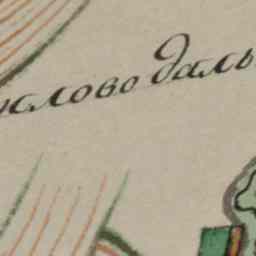 слово даль